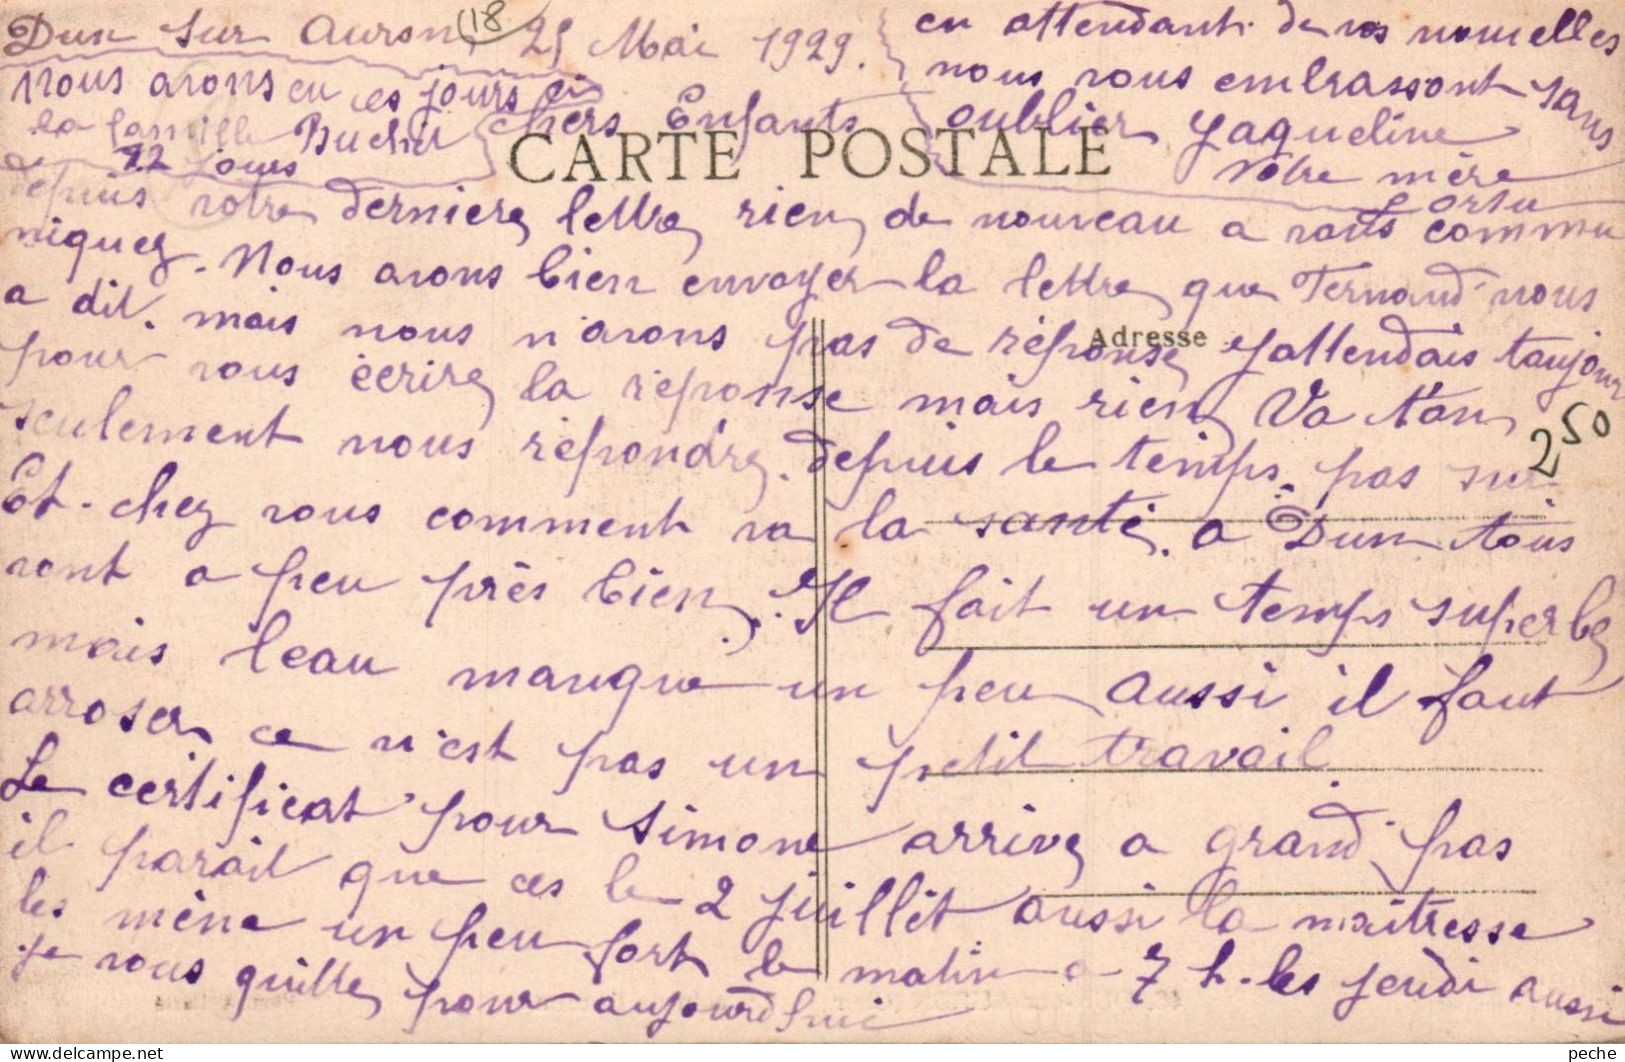 Dun sur Auron, 18
25 Mai 1929.
Chers Enfants
CARTE POSTALE
depuis votre derniere lettre rien de nouveau a vous commu
niquez. Nous avons bien envoyer la lettre que Fernand nous
a dit. mais nous n'avons pas de réponse j'attendais toujour
Adresse
pour vous écrire la réponse mais rien Va t'an
250
seulement nous répondre. depuis le temps pas sur.
Et chez vous comment va la santé. a Dun tous
vont a peu près bien. Il fait un temps superbe
mais l'eau manque un peu aussi il faut
arroser ce n'est pas un petit travail
Le certificat pour Simone arrive a grand pas
il parait que ces le 2 juillet aussi la maitresse
les mène un peu fort le matin a 7 h. les jeudi aussi
je vous quitte pour aujourd'hui
en attendant de vos nouvelles
nous vous embrassont sans
oublier Jaqueline
Votre mère
nous avons eu ces jours ci
la famille
22 jours
peche Delcampe.net